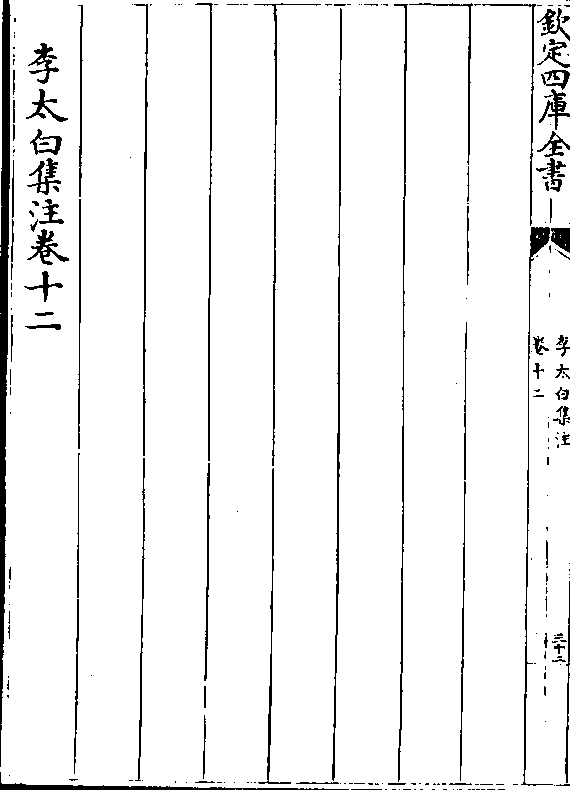 欽定四庫全書
李太白集注
卷十二
三十二
李太白集注卷十二